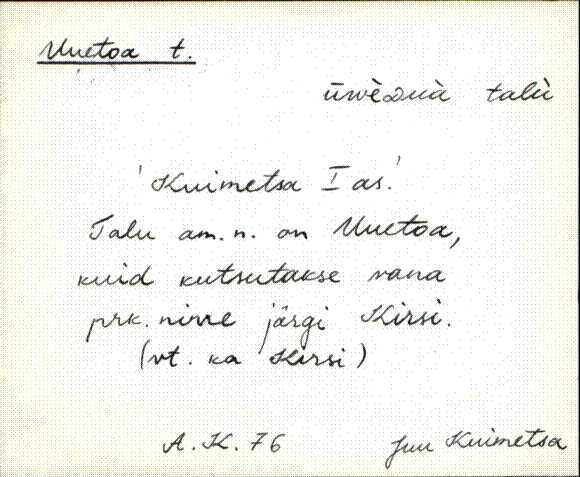 Uuetoa t.
ūwèᴅuà talù
'Kuimetsa I as.'
Talu am.n. on Uuetoa,
kuid kutsutakse vana
prk. nime järgi Kirsi.
(vt. ka Kirsi)
A.K. 76
Juu Kuimetsa